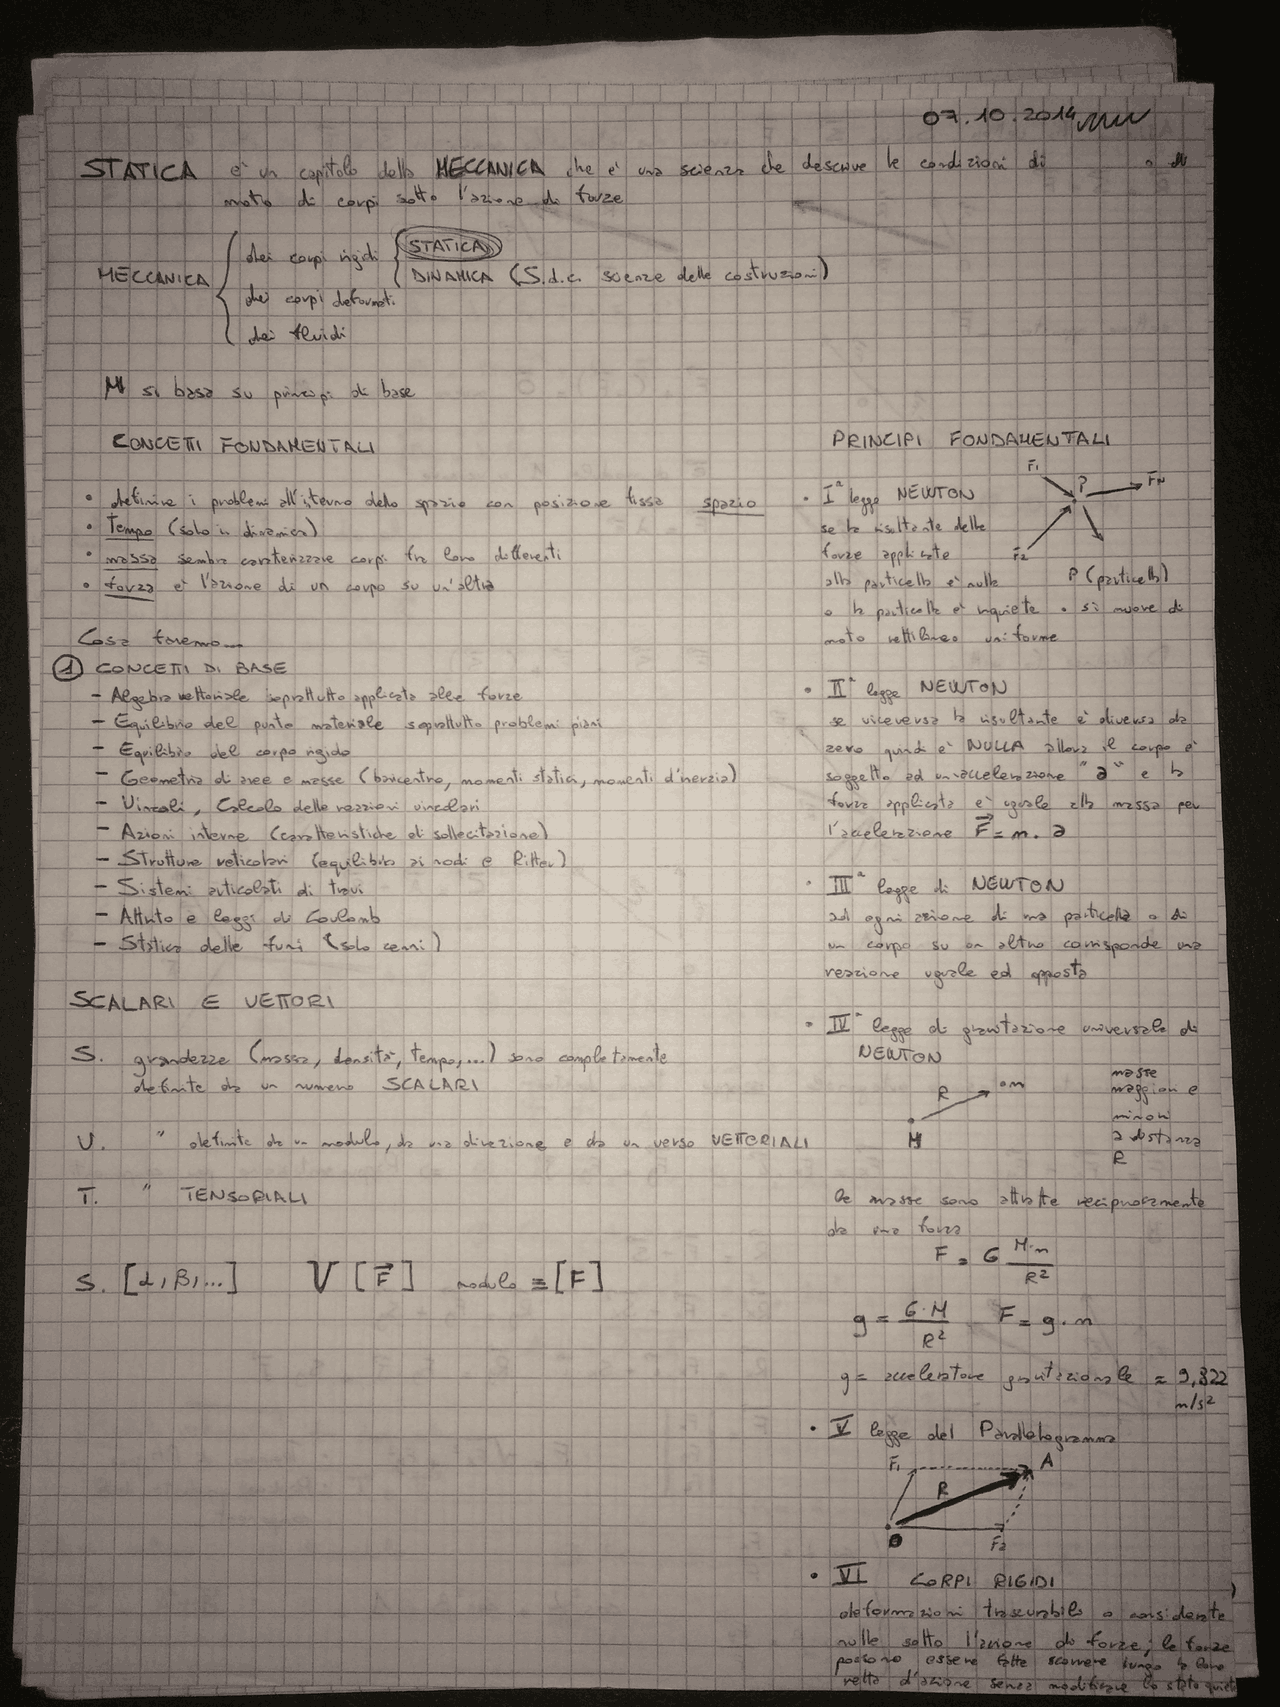 07.10.2014
STATICA è un capitolo della MECCANICA che è una scienza che descrive le condizioni di o di
moto di corpi sotto l'azione di forze
MECCANICA
dei corpi rigidi
STATICA
DINAMICA (S.d.c. scienze delle costruzioni)
dei corpi deformati
dei fluidi
M si basa su principi di base
CONCETTI FONDAMENTALI
• definire i problemi all'interno dello spazio con posizione fissa spazio
• Tempo (solo in dinamica)
• massa sembra caratterizzare corpi fra loro differenti
• forza è l'azione di un corpo su un'altro
Cosa faremo...
1 CONCETTI DI BASE
- Algebra vettoriale soprattutto applicata alle forze
- Equilibrio del punto materiale soprattutto problemi piani
- Equilibrio del corpo rigido
- Geometria di aree e masse (baricentro, momenti statici, momenti d'inerzia)
- Vincoli, Calcolo delle reazioni vincolari
- Azioni interne (caratteristiche di sollecitazione)
- Strutture reticolari (equilibrio ai nodi e Ritter)
- Sistemi articolati di travi
- Attrito e leggi di Coulomb
- Statica delle funi (solo cenni)
SCALARI E VETTORI
S. grandezze (massa, densità, tempo,...) sono completamente
definite da un numero SCALARI
V. " definite da un modulo, da una direzione e da un verso VETTORIALI
T. " TENSORIALI
S. [α, β, ...] V [F⃗] modulo ≡ [F]
PRINCIPI FONDAMENTALI
• Iª legge NEWTON
se la risultante delle
forze applicate
alla particella è nulla
o la particella è inquiete o si muove di
moto rettilineo uniforme
F1
P
FN
F2
P (particella)
• IIª legge NEWTON
se viceversa la risultante è diversa da
zero quindi è NULLA allora il corpo è
soggetto ad un'accelerazione "a" e la
forza applicata è uguale alla massa per
l'accelerazione F⃗ = m · a
• IIIª legge di NEWTON
ad ogni azione di una particella o di
un corpo su un altro corrisponde una
reazione uguale ed opposta
• IVª legge di gravitazione universale di
NEWTON
R
m
M
masse
maggiori e
minori
a distanza
R
le masse sono attratte reciprocamente
da una forza
F = G M·m / R²
g = G·M / R² F = g · m
g = acceleratore gravitazionale ≈ 9,822
m/s²
• V legge del Parallelogramma
F1
A
R
O
F2
• VI CORPI RIGIDI
deformazioni trascurabili o considerate
nulle sotto l'azione di forze; le forze
possono essere fatte scorrere lungo la loro
retta d'azione senza modificare lo stato